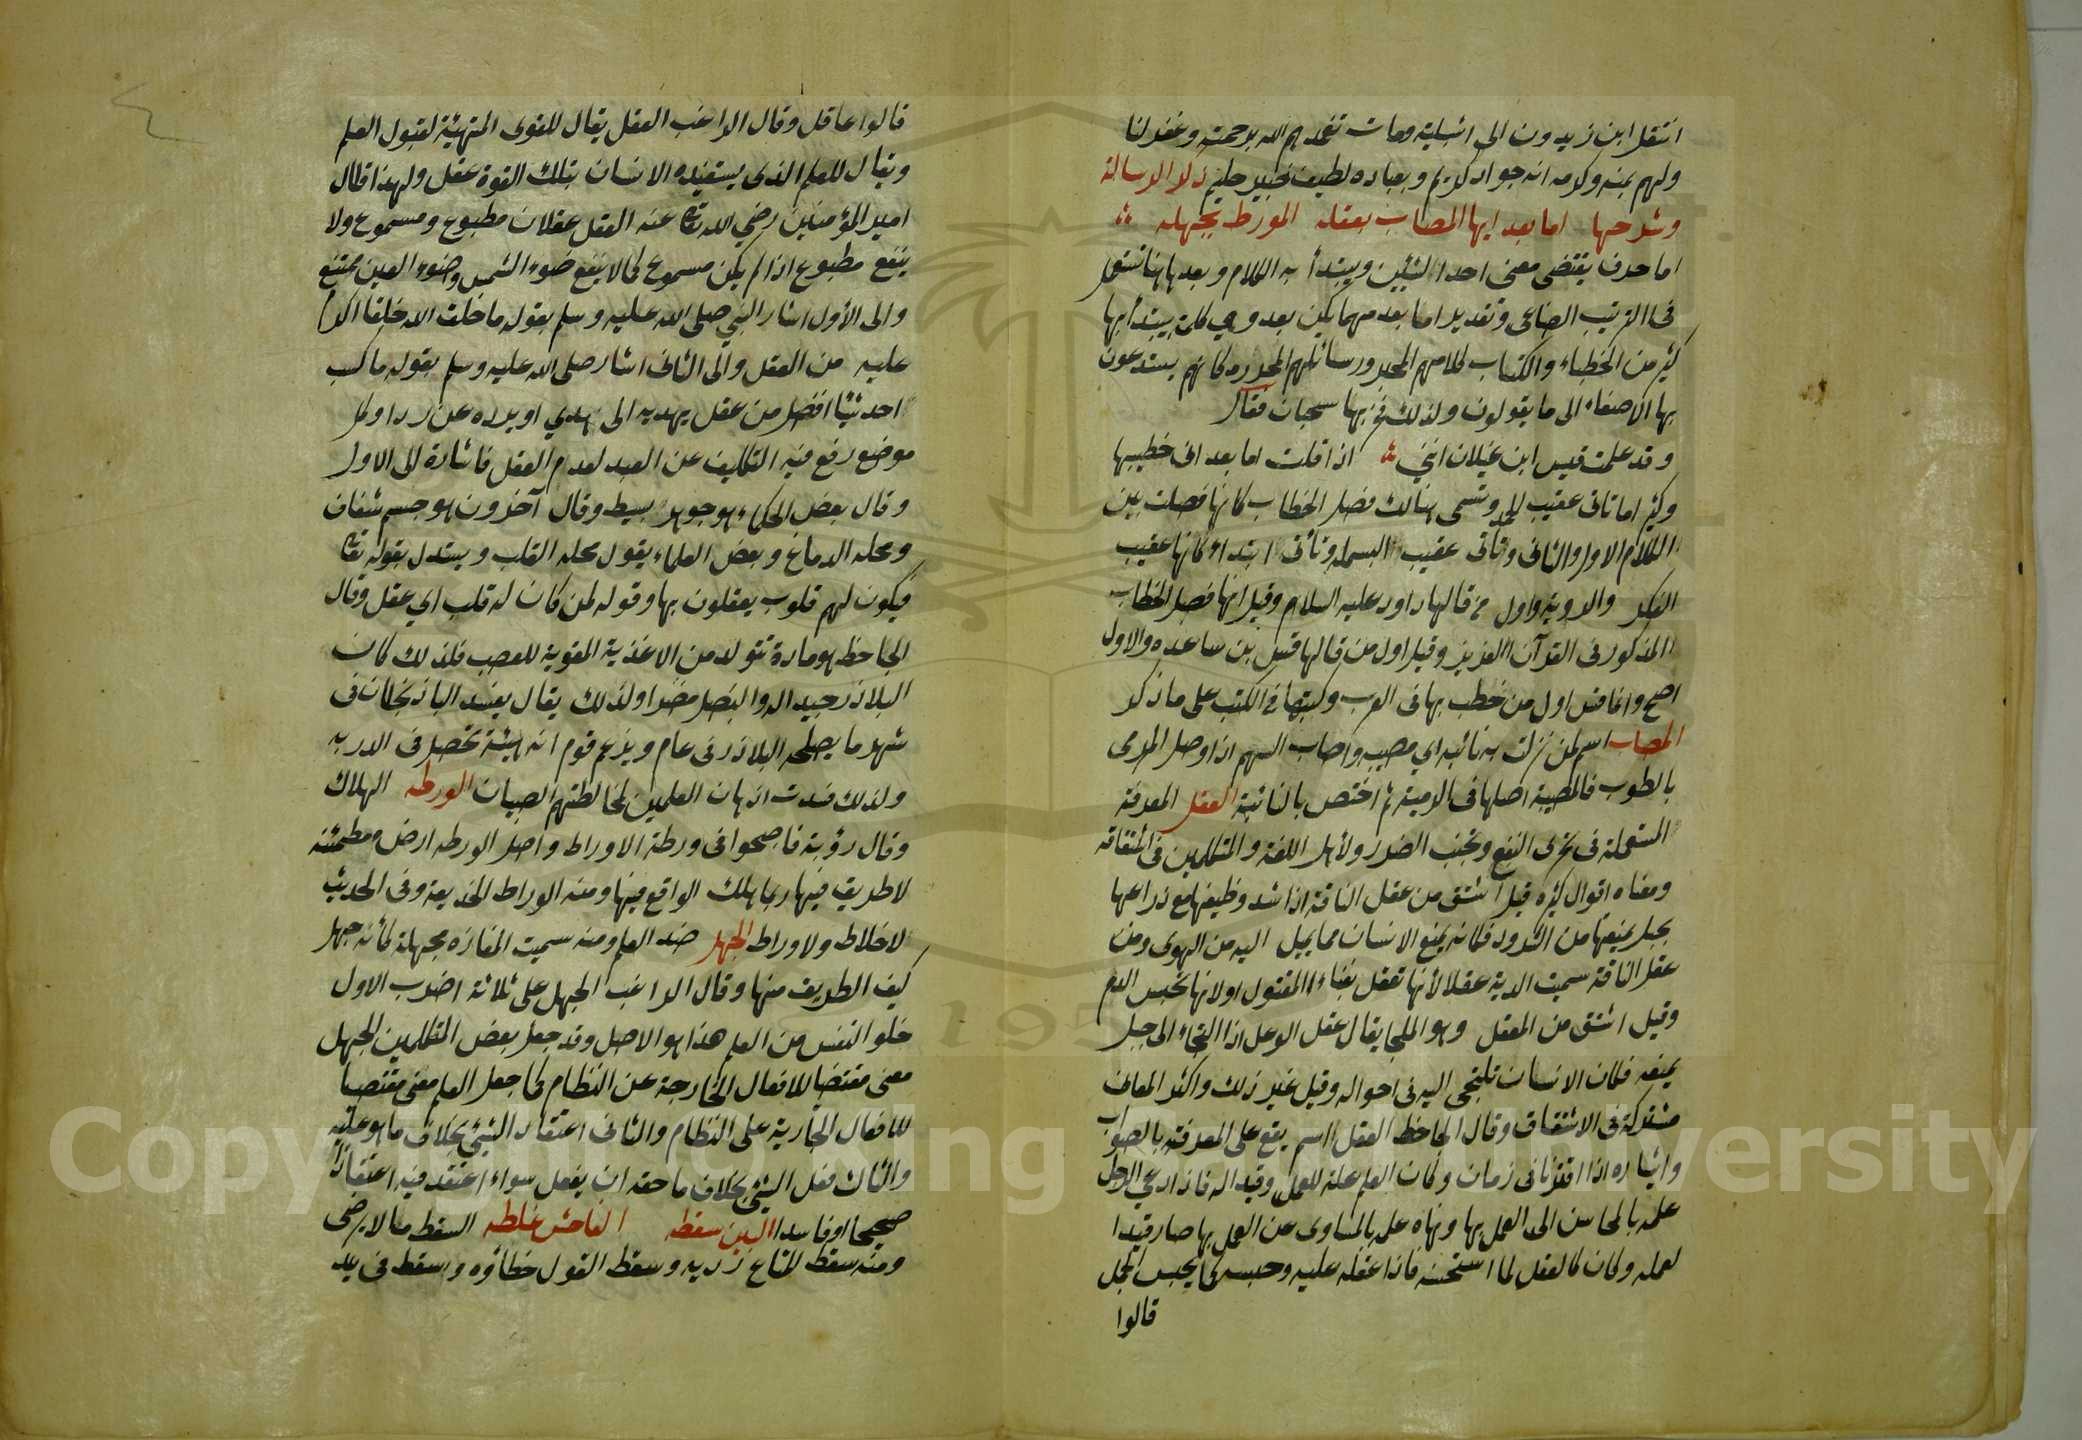 انتقل ابن زيدون الى اشبلية ومات تغمدهم الله برحمته وغفر لنا
ولهم بمنه وكرمه انه جواد كريم وبعباده لطيف خبير حليم ذكر الرسالة
وشرحها اما بعد ايها المصاب بعقله المورط بجهله
اما حرف يقتضى معنى احد الشيئين ويبتدأ به الكلام وبعد هاهنا تستعمل
فى الترتيب الصناعى وتقدير اما بعد مهما يكن بعد وهي كلمة يبتدأ بها
كثير من الخطباء والكتاب كلامهم المحبر ورسائلهم المحررة كانهم يستدعون
بها الاصغاء الى ما يقولون ولذلك فخر بها سحبان فقال
وقد علمت قيس ابن غيلان اننى اذا قلت اما بعد انى خطيبها
وكثيرا ما تاتى عقيب الحمد وتسمى هنالك فصل الخطاب كانها فصلت بين
الكلام الاول والثانى وتاتى عقيب البسملة وتأتى ابتداء كانها عقيب
الفكر والروية واول من قالها داود عليه السلام وقيل انها فصل الخطاب
المذكور فى القرآن العزيز وقيل اول من قالها قس بن ساعده والاول
اصح وانما قس اول من خطب بها فى العرب وكتبها فى الكتب على ما ذكر
المصاب اسم لمن نزلت به نائبه اي مصيبه واصاب السهم اذا وصل المرمى
بالطوب فالمصيبة اصلها فى الرمية ثم اختص بالنائبة العقل المعرفة
المستعملة فى تحرى النفع وتجنب الضرر ولأهل اللغة والمتكلمين فى اشتقاقه
ومعناه اقوال كثيره قيل اشتق من عقل الناقة اذا شد وظيفها مع ذراعها
بحبل يمنعها من الشرود فكانه يمنع الانسان مما يميل اليه من الهوى ومن
عقل الناقة سميت الدية عقلا لأنها تعقل بفناء المقتول او لانها تحبس الدم
وقيل اشتق من المعقل وهو الملجا يقال عقل الوعل اذا التجاء الى جبل
يمنعه فكان الانسان تلتجى اليه فى احواله وقيل غير ذلك واكثر المعانى
مشتركة فى الاشتقاق وقال الجاحظ العقل اسم يقع على المعرفة بالصواب
وايثاره اذا اقترنا فى زمان وكان العلم علة للعمل وقيدا له فاذا دعى الرجل
علمه بالمحاسن الى العمل بها ونهاه علمه بالمساوى عن العمل بها صار قيدا
لعمله وكان كالعقل لما استحسنه فاذا عقله عليه وحبسه كما يحبس الجمل
قالوا
قالوا عاقل وقال الراغب العقل يقال للقوى المتهيئة لقبول العلم
ويقال للعلم الذى يستفيده الانسان بتلك القوة عقل ولهذا قال
امير المؤمنين رضي الله تعالى عنه العقل عقلان مطبوع ومسموع ولا
ينفع مطبوع اذا لم يكن مسموع كما لا ينفع ضوء الشمس وضوء العين ممتنع
والى الأول اشار النبي صلى الله عليه وسلم بقوله ما خلق الله خلقا اكرم
عليه من العقل والى الثانى اشار صلى الله عليه وسلم بقوله ما كسب
احد شيئا افضل من عقل يهديه الى هدي او يرده عن ردا وكل
موضع رفع فيه التكليف عن العبد لعدم العقل فاشارة الى الاول
وقال بعض الحكماء هو جوهر بسيط وقال آخرون هو جسم شفاف
ومحله الدماغ وبعض العلماء يقول محله القلب ويستدل بقوله تعالى
فيكون لهم قلوب يعقلون بها وقوله لمن كان له قلب اي عقل وقال
الجاحظ هو مادة تتولد من الاغذية المقوية للعصب فلذلك كان
البلاذر جيدا له والبصل مضرا ولذلك يقال يفسد الباذنجان فى
شهر ما يصلحه البلاذر فى عام ويزعم قوم انه هيئة تحصل فى الدربه
ولذلك فسدت اذهان المعلمين لمخالطتهم الصبيان الورطه الهلاك
وقال رؤبة فاصبحوا فى ورطة الاوراط واصل الورطه ارض مطمئنه
لا طريق فيها ربما هلك الواقع فيها ومنه الوراط الخديعة وفى الحديث
لا خلاط ولا وراط الجهل ضد العلم ومنه سميت المفازه مجهلة كأنه جهل
كيف الطريق منها وقال الراغب الجهل على ثلاثة اضرب الاول
خلو النفس من العلم هذا هو الاصل وقد جعل بعض المتكلمين الجهل
معنى مقتضيا للافعال الخارجة عن النظام كما جعل العلم معنى مقتضيا
للافعال الجارية على النظام والثانى اعتقاد الشئ بخلاف ما هو عليه
والثالث فعل الشئ بخلاف ما حقه ان يفعل سواء اعتقد فيه اعتقادا
صحيحا او فاسدا البين سقطه الفاحش غلطه السقط ما لا يرضى
ومنه سقط المتاع رديه وسقط القول خطاؤه وسقط فى يد